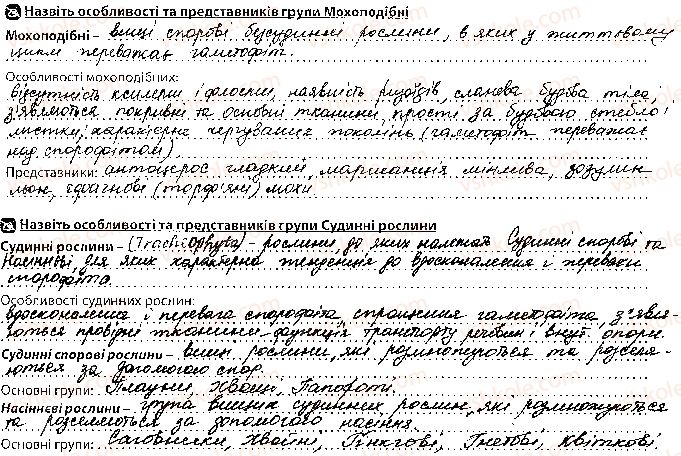 Назвіть особливості та представників групи Мохоподібні
Мохоподібні – вищі спорові безсудинні рослини, в яких у життєвому
циклі переважає гаметофіт.
Особливості мохоподібних:
відсутність ксилеми і флоеми, наявність ризоїдів, сланева будова тіла,
з'являються покривні та основні тканини, прості за будовою стебло і
листки, характерне чергування поколінь (гаметофіт переважає
над спорофітом).
Представники: антоцерос гладкий, маршанція мінлива, зозулин
льон, сфагнові (торф'яні) мохи.
Назвіть особливості та представників групи Судинні рослини
Судинні рослини – (Trachiophyta) – рослини до яких належать Судинні спорові та
Насіннєві для яких характерна тенденція до вдосконалення і переваги
спорофіта.
Особливості судинних рослин:
вдосконалення і перевага спорофіта, спрощення гаметофіта з'явля-
ються провідні тканини функція транспорту речовин і внут. опори.
Судинні спорові рослини – вищі рослини, які розмножуються та розселя-
ються за допомогою спор.
Основні групи: Плауни, Хвощі, Папороті.
Насіннєві рослини – група вищих судинних рослин, які розмножуються
та розселяються за допомогою насіння.
Основні групи: Саговники, Хвойні, Гінкгові, Гнетові, квіткові.